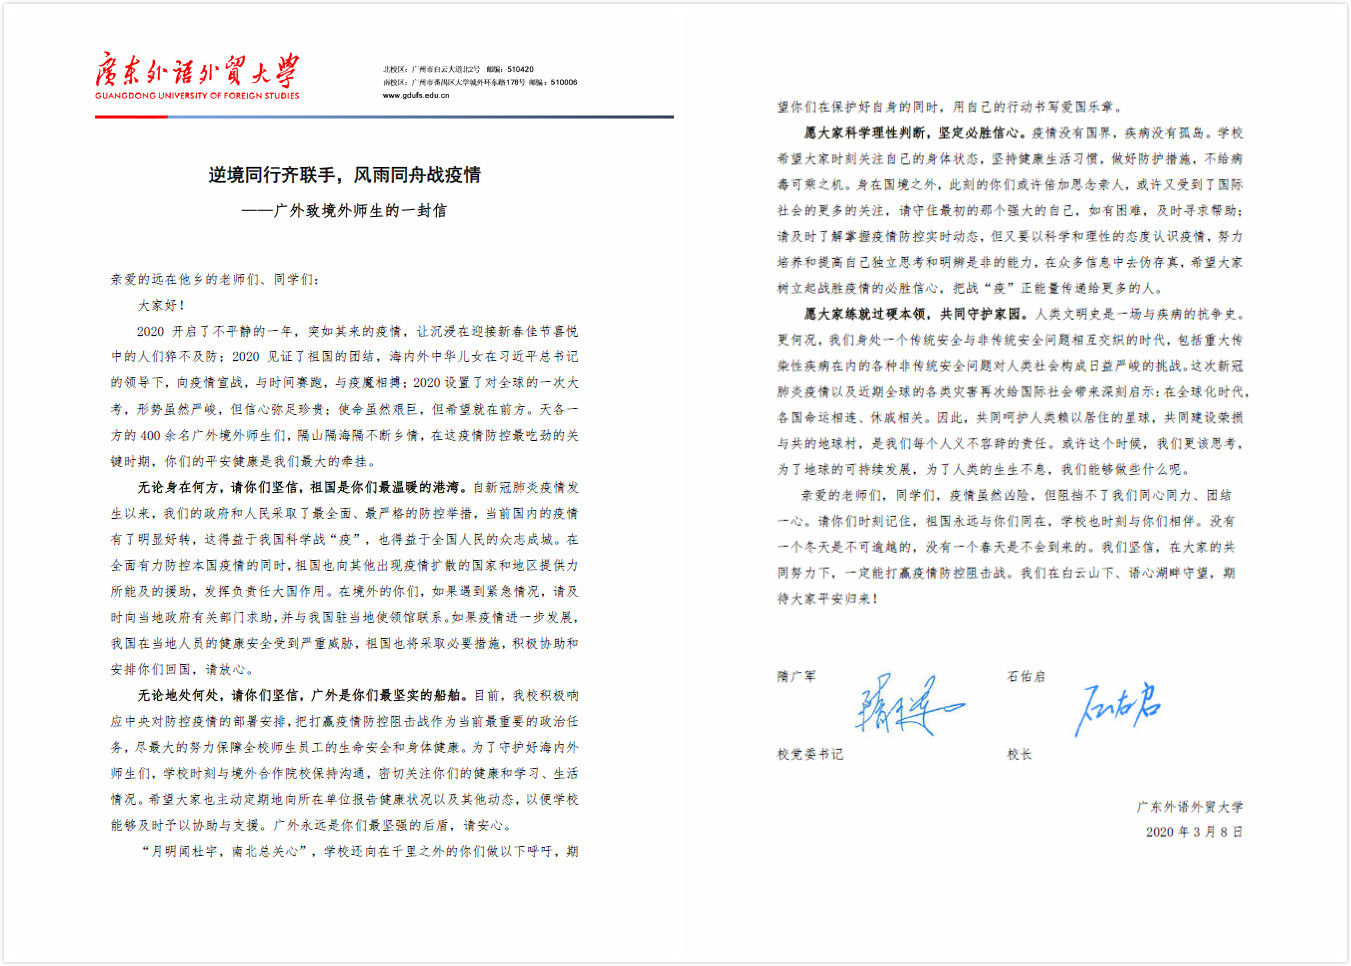 廣东外语外贸大学
GUANGDONG UNIVERSITY OF FOREIGN STUDIES
北校区：广州市白云大道北2号 邮编：510420
南校区：广州市番禺区大学城外环东路178号 邮编：510006
www.gdufs.edu.cn
逆境同行齐联手，风雨同舟战疫情
——广外致境外师生的一封信
亲爱的远在他乡的老师们、同学们：
大家好！
2020 开启了不平静的一年，突如其来的疫情，让沉浸在迎接新春佳节喜悦
中的人们猝不及防；2020 见证了祖国的团结，海内外中华儿女在习近平总书记
的领导下，向疫情宣战，与时间赛跑，与疫魔相搏；2020 设置了对全球的一次大
考，形势虽然严峻，但信心弥足珍贵；使命虽然艰巨，但希望就在前方。天各一
方的 400 余名广外境外师生们，隔山隔海隔不断乡情，在这疫情防控最吃劲的关
键时期，你们的平安健康是我们最大的牵挂。
无论身在何方，请你们坚信，祖国是你们最温暖的港湾。自新冠肺炎疫情发
生以来，我们的政府和人民采取了最全面、最严格的防控举措，当前国内的疫情
有了明显好转，这得益于我国科学战“疫”，也得益于全国人民的众志成城。在
全面有力防控本国疫情的同时，祖国也向其他出现疫情扩散的国家和地区提供力
所能及的援助，发挥负责任大国作用。在境外的你们，如果遇到紧急情况，请及
时向当地政府有关部门求助，并与我国驻当地使领馆联系。如果疫情进一步发展，
我国在当地人员的健康安全受到严重威胁，祖国也将采取必要措施，积极协助和
安排你们回国，请放心。
无论地处何处，请你们坚信，广外是你们最坚实的船舶。目前，我校积极响
应中央对防控疫情的部署安排，把打赢疫情防控阻击战作为当前最重要的政治任
务，尽最大的努力保障全校师生员工的生命安全和身体健康。为了守护好海内外
师生们，学校时刻与境外合作院校保持沟通，密切关注你们的健康和学习、生活
情况。希望大家也主动定期地向所在单位报告健康状况以及其他动态，以便学校
能够及时予以协助与支援。广外永远是你们最坚强的后盾，请安心。
“月明闻杜宇，南北总关心”，学校还向在千里之外的你们做以下呼吁，期
望你们在保护好自身的同时，用自己的行动书写爱国乐章。
愿大家科学理性判断，坚定必胜信心。疫情没有国界，疾病没有孤岛。学校
希望大家时刻关注自己的身体状态，坚持健康生活习惯，做好防护措施，不给病
毒可乘之机。身在国境之外，此刻的你们或许倍加思念亲人，或许又受到了国际
社会的更多的关注，请守住最初的那个强大的自己，如有困难，及时寻求帮助；
请及时了解掌握疫情防控实时动态，但又要以科学和理性的态度认识疫情，努力
培养和提高自己独立思考和明辨是非的能力，在众多信息中去伪存真，希望大家
树立起战胜疫情的必胜信心，把战“疫”正能量传递给更多的人。
愿大家练就过硬本领，共同守护家园。人类文明史是一场与疾病的抗争史。
更何况，我们身处一个传统安全与非传统安全问题相互交织的时代，包括重大传
染性疾病在内的各种非传统安全问题对人类社会构成日益严峻的挑战。这次新冠
肺炎疫情以及近期全球的各类灾害再次给国际社会带来深刻启示：在全球化时代，
各国命运相连、休戚相关。因此，共同呵护人类赖以居住的星球，共同建设荣损
与共的地球村，是我们每个人义不容辞的责任。或许这个时候，我们更该思考，
为了地球的可持续发展，为了人类的生生不息，我们能够做些什么呢。
亲爱的老师们，同学们，疫情虽然凶险，但阻挡不了我们同心同力、团结
一心。请你们时刻记住，祖国永远与你们同在，学校也时刻与你们相伴。没有
一个冬天是不可逾越的，没有一个春天是不会到来的。我们坚信，在大家的共
同努力下，一定能打赢疫情防控阻击战。我们在白云山下、语心湖畔守望，期
待大家平安归来！
隋广军 隋广军 石佑启 石佑启
校党委书记 校长
广东外语外贸大学
2020 年 3 月 8 日